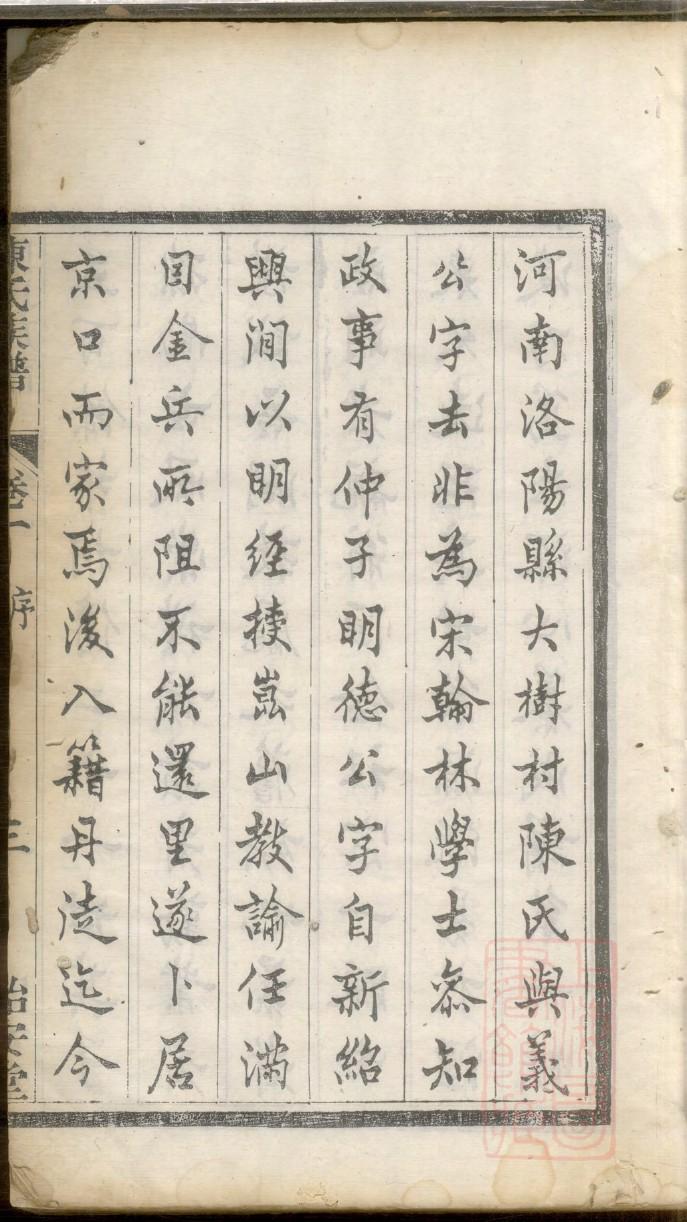 河南洛陽縣大樹村陳氏與義
公字去非為宋翰林學士叅知
政事有仲子明德公字自新紹
興間以明經授崑山教諭任滿
因金兵所阻不能還里遂卜居
京口而家焉後入籍丹徒迄今
陳氏族譜 卷一 序 三 怡安堂